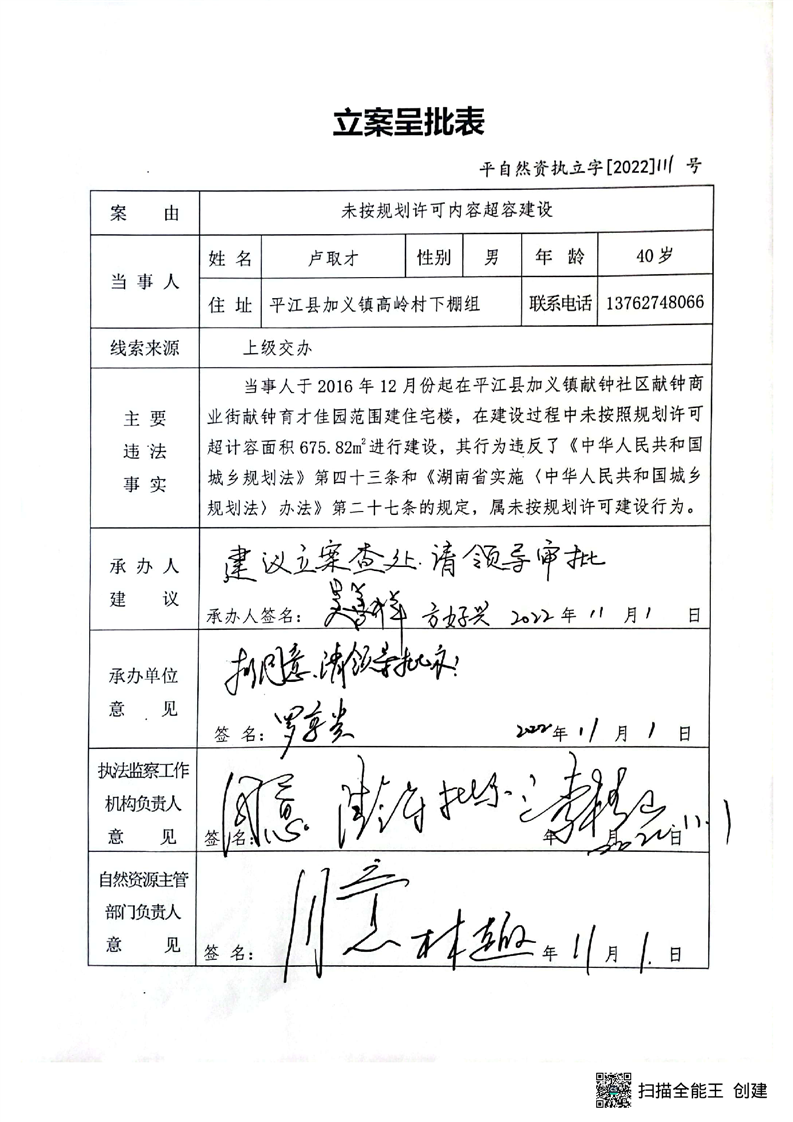 立案呈批表
平自然资执立字[2022]111号
案 由 未按规划许可内容超容建设
当事人 姓名 卢取才 性别 男 年龄 40岁
住址 平江县加义镇高岭村下棚组 联系电话 13762748066
线索来源 上级交办
主要违法事实
当事人于2016年12月份起在平江县加义镇献钟社区献钟商
业街献钟育才佳园范围建住宅楼，在建设过程中未按照规划许可
超计容面积675.82m²进行建设，其行为违反了《中华人民共和国
城乡规划法》第四十三条和《湖南省实施〈中华人民共和国城乡
规划法〉办法》第二十七条的规定，属未按规划许可建设行为。
承办人建议
建议立案查处.请领导审批
承办人签名： 方好兴 2022年11月1日
承办单位意见
同意.请领导批示!
签名： 2022年11月1日
执法监察工作机构负责人意见
同意
签名： 年 月 日
2022.11.1
自然资源主管部门负责人意见
同意
签名： 林 年11月1日
扫描全能王 创建